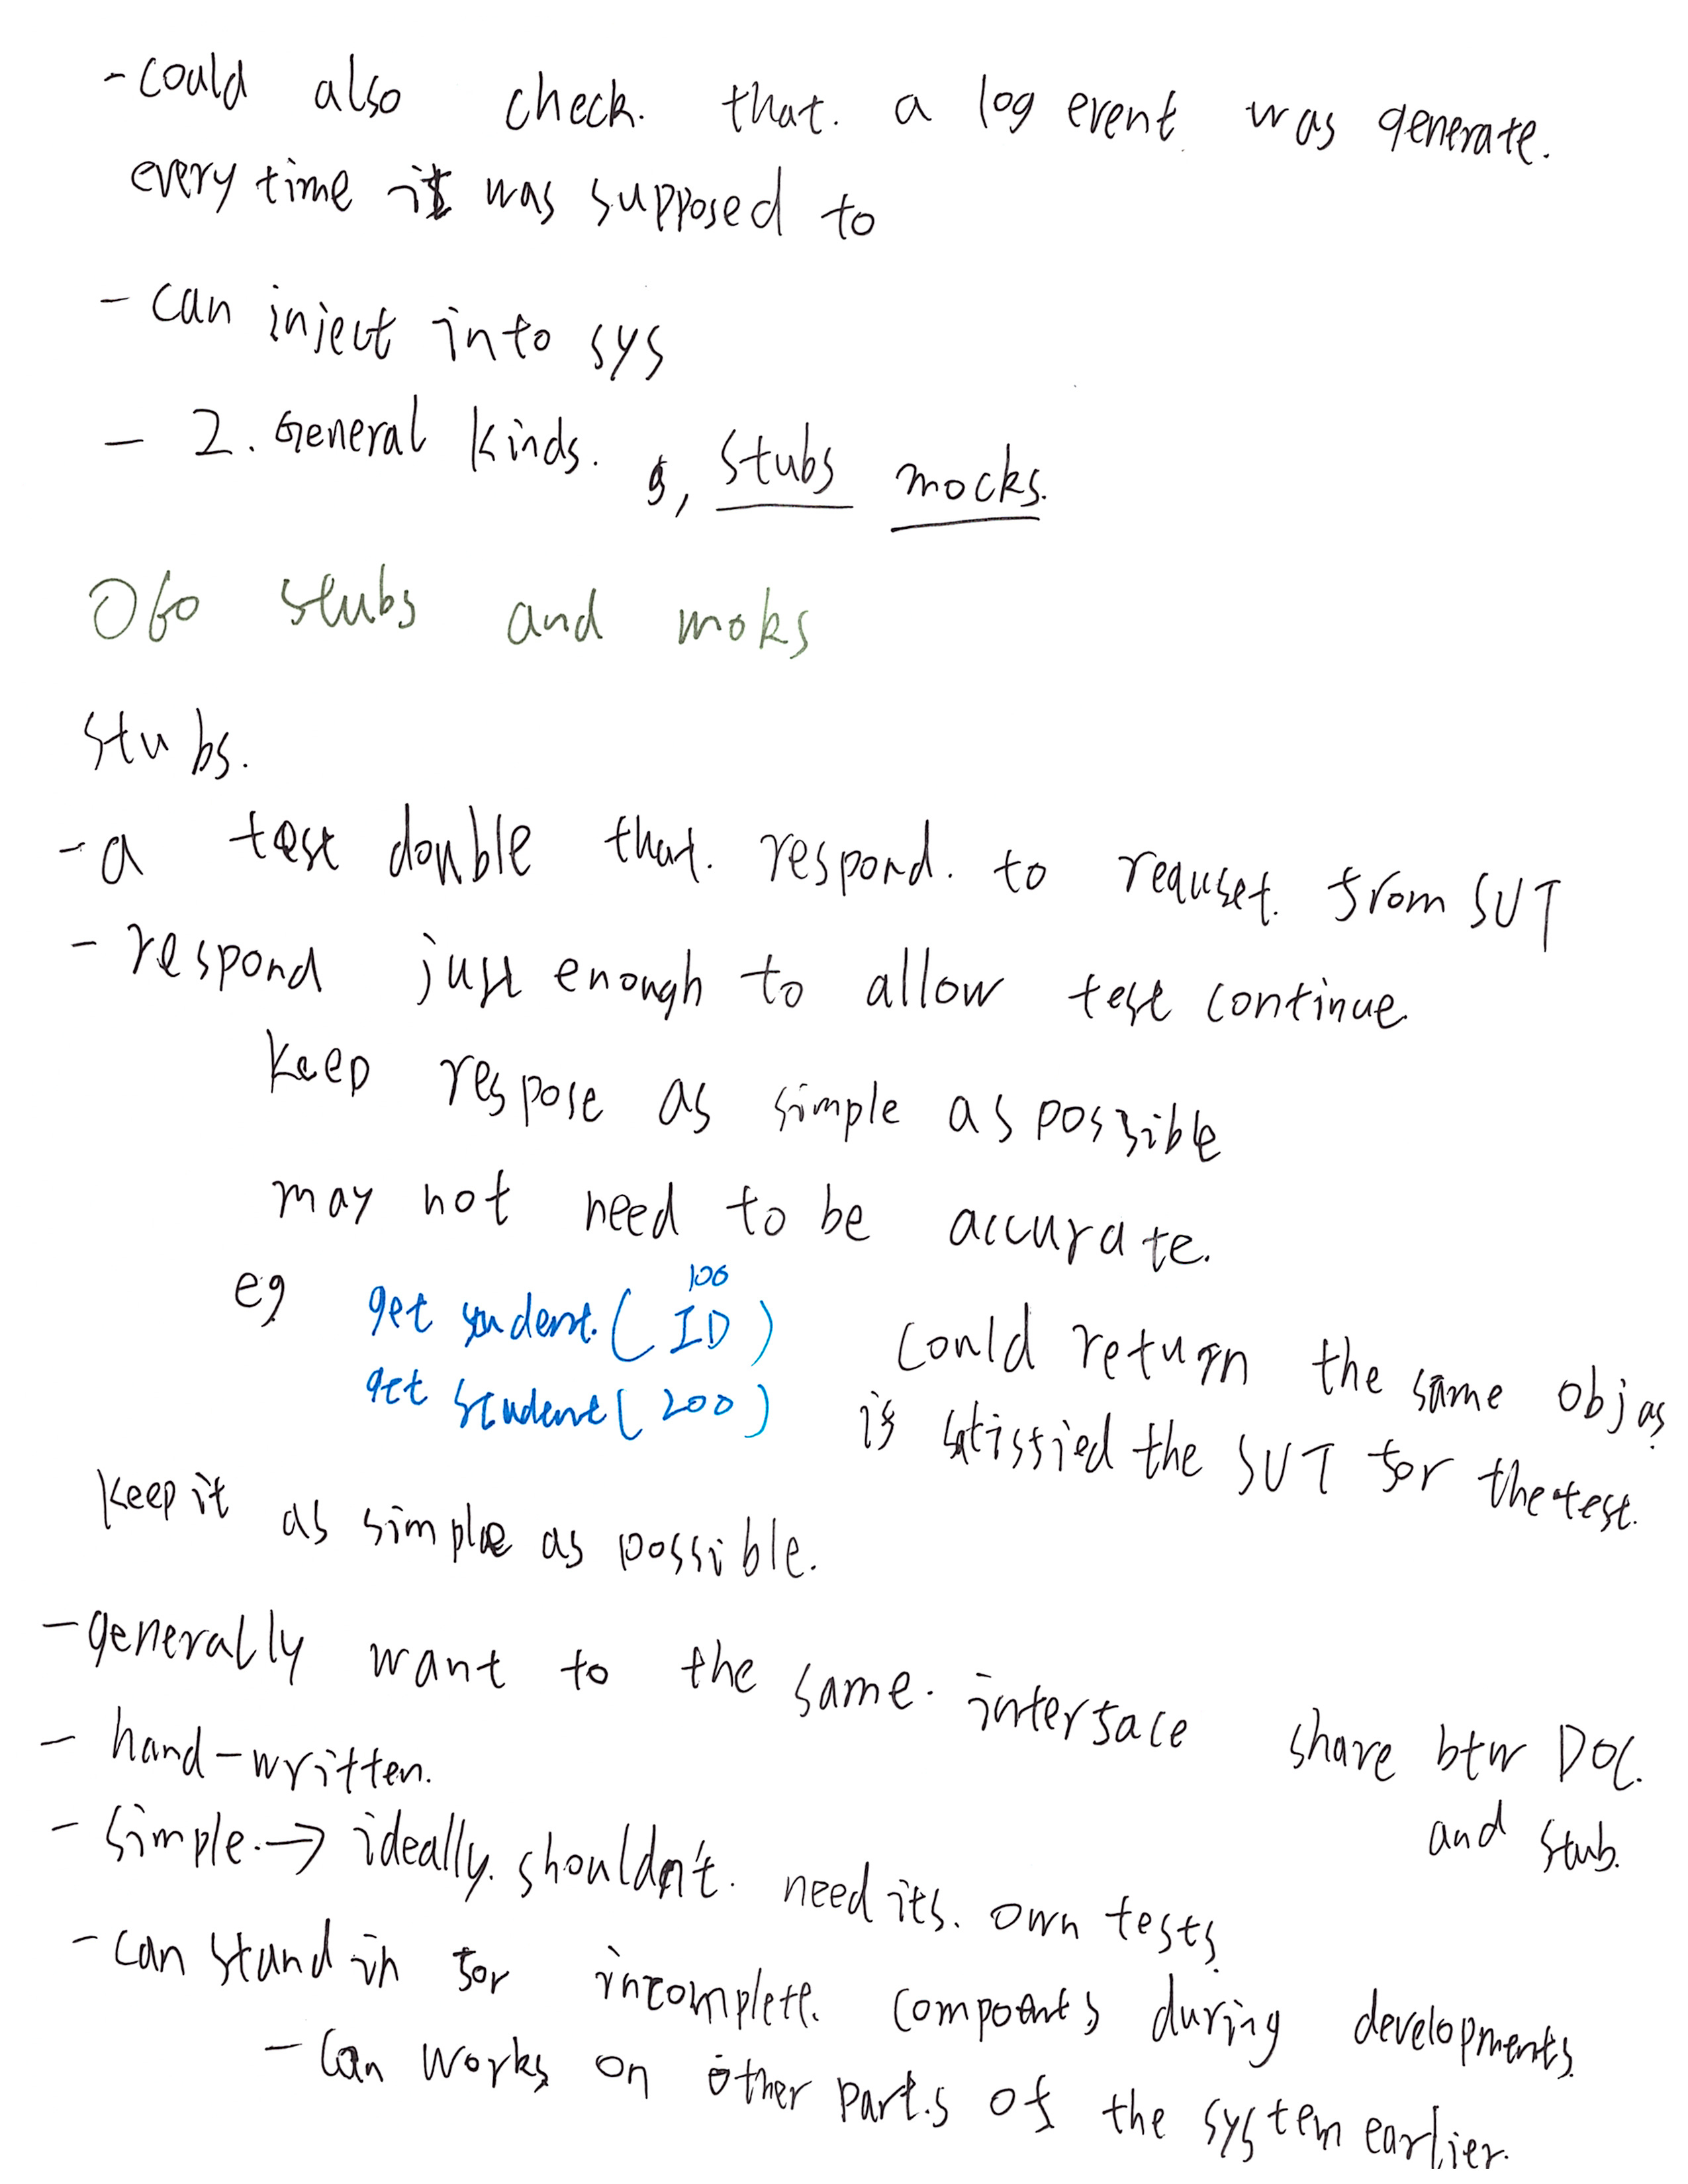 - could also check. that. a log event was generate.
every time it was supposed to
- can inject into sys
- 2. General kinds. , stubs mocks.
stubs and moks
stubs.
- a test double that. respond. to requset. from SUT
- respond just enough to allow test continue
keep respose as simple as possible
may not need to be accurate.
eg get student. ( ID ) 100
could return the same obj as
get student ( 200 )
is satisfied the SUT for the test.
keep it as simple as possible.
- generally want to the same. interface share btw DOC.
and stub.
- hand-written.
- simple. → ideally. shouldn't. need its. own tests
- can stand in for incomplete. compoants during developments.
- can works on other parts of the system earlier.